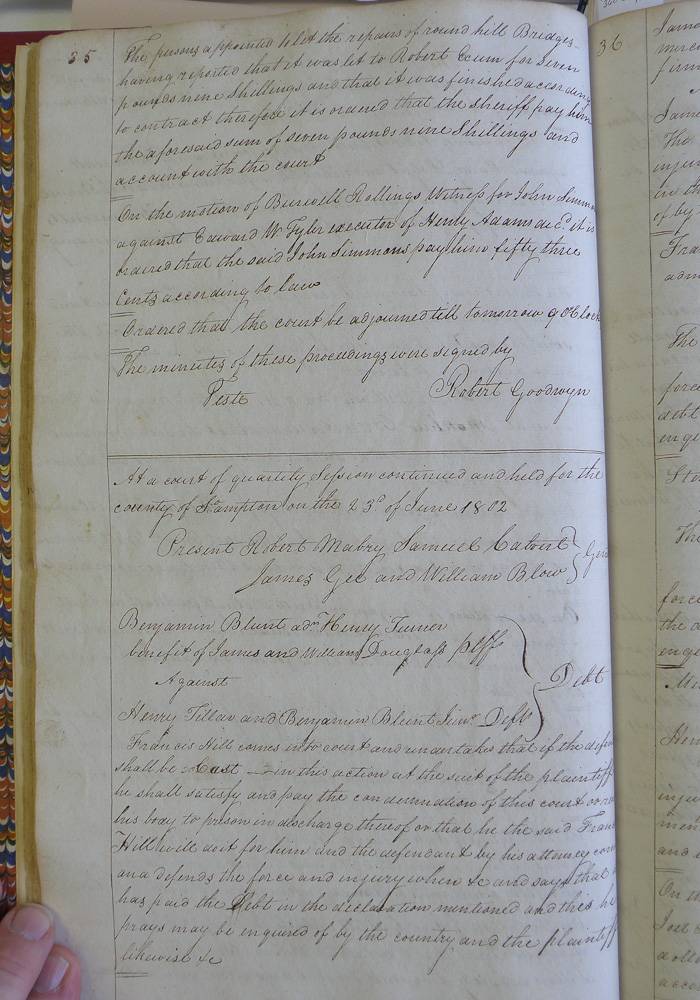 35
The persons appointed to let the repairs of round hill Bridges
having reported that it was let to Robert Exum for Seven
pounds nine Shillings and that it was finished according
to contract therefore it is ordered that the sheriff pay him
the aforesaid sum of seven pounds nine Shillings and
account with the court
On the motion of Burwell Rollings Witness for John Simmons
against Edward W Tyler executor of Henly Adams decd. it is
ordered that the said John Simmons pay him fifty three
Cents according to law
Ordered that the court be adjourned till tomorrow 9 oClock
The minutes of these proceedings were signed by
Teste Robert Goodwyn
At a court of quartily Session continued and held for the
county of So.ampton on the 23d of June 1802
Present Robert Mabry Samuel Calvert
James Gee and William Blow } Gen
Benjamin Blunt adm Henry Turner
benefit of James and William Douglass plff
Against } Debt
Henry Tillar and Benjamin Blunt Junr. Defts
Francis Hill comes into court and undertakes that if the defen
shall be Cast in this action at the suit of the plaintiff
he shall satisfy and pay the condemnation of this court or re
his body to prison in discharge thereof or that he the said Fran
Hill will do it for him and the defendant by his attorney com
and defends the force and injury when &c and says that
has paid the Debt in the declaration mentioned and this he
prays may be enquired of by the country and the plaintiff
likewise &c
36
James
The
of by
Fra
adm
The
force
debt
enqe
The
force
the d
enqe
Hen
and